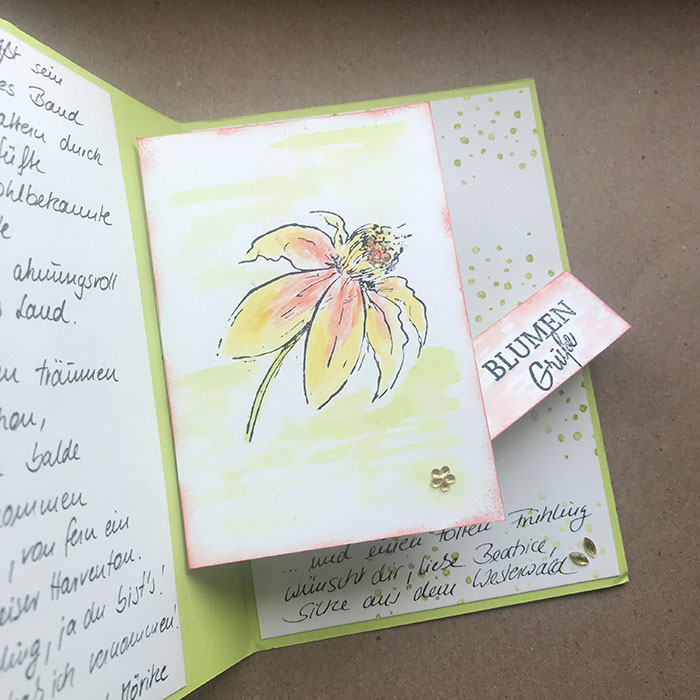 ßt sein
es Band
attern durch
üfte
ohlbekannte
ahnungsvoll
s Land.
träumen
hon,
balde
kommen
, von fern ein
eiser Harfenton.
ling, ja du bist's!
hab ich vernommen!
Mörike
BLUMEN
Grüße
... und einen tollen Frühling
wünscht dir, liebe Beatrice,
Silke aus dem Westerwald